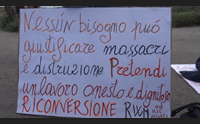 Nessun bisogno può
giustificare massacri
e distruzione Pretendi
un lavoro onesto e dignitoso
RICONVERSIONE RWM